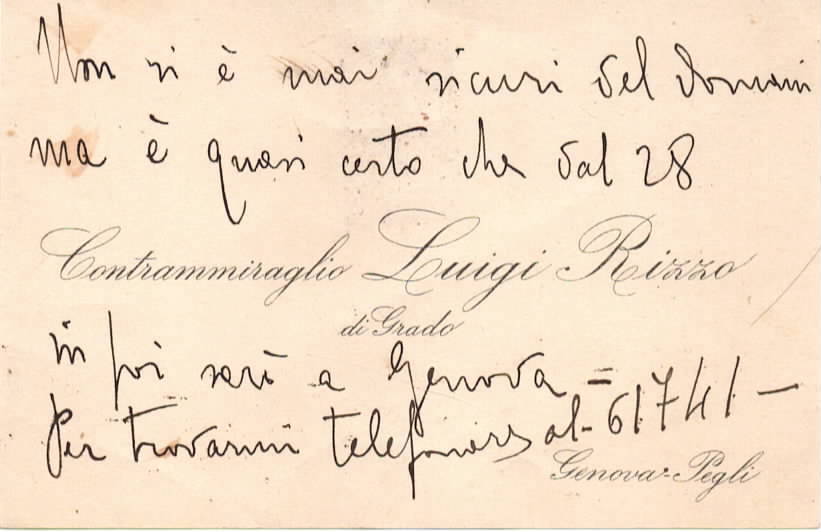 Non si è mai sicuri del domani
ma è quasi certo che dal 28
Contrammiraglio Luigi Rizzo
di Grado
in poi sarò a Genova =
Per trovarmi telefonare al - 61741 -
Genova-Pegli